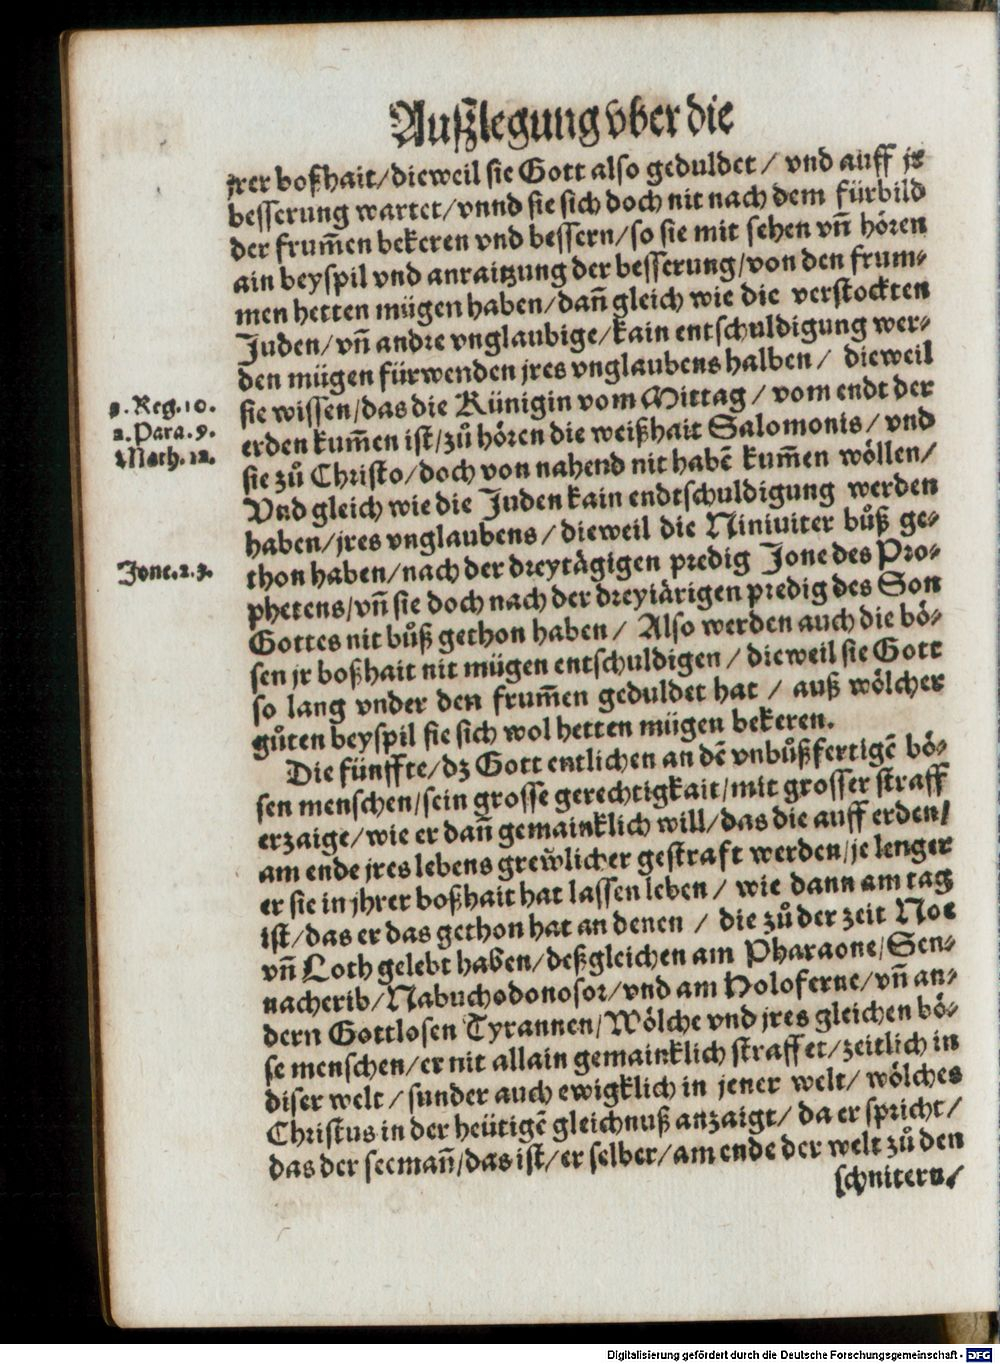 Außlegung vber die
jrer boßhait/dieweil sie Gott also geduldet/ vnd auff jr
besserung wartet/vnnd sie sich doch nit nach dem fürbild
der frum̄en bekeren vnd bessern/so sie mit sehen vn̄ hören
ain beyspil vnd anraitzung der besserung/von den frum-
men hetten mügen haben/dan̄ gleich wie die verstockten
Juden/vn̄ andre vnglaubige/kain entschuldigung wer-
den mügen fürwenden jres vnglaubens halben/ dieweil
sie wissen/das die Künigin vom Mittag/ vom endt der
erden kum̄en ist/zů hören die weißhait Salomonis/ vnd
sie zů Christo/doch von nahend nit habē kum̄en wöllen/
Vnd gleich wie die Juden kain endtschuldigung werden
haben/jres vnglaubens/ dieweil die Niniuiter bůß ge-
thon haben/nach der dreytägigen predig Jone des Pro-
phetens/vn̄ sie doch nach der dreyjärigen predig des Son
Gottes nit bůß gethon haben/ Also werden auch die bö-
sen jr boßhait nit mügen entschuldigen/dieweil sie Gott
so lang vnder den frum̄en geduldet hat/ auß wölcher
gůten beyspil sie sich wol hetten mügen bekeren.
Die fünffte/dz Gott entlichen an dē vnbůßfertigē bö-
sen menschen/sein grosse gerechtigkait/mit grosser straff
erzaige/wie er dan̄ gemainklich will/das die auff erden/
am ende jres lebens grewlicher gestraft werden/je lenger
er sie in jhrer boßhait hat lassen leben/ wie dann am tag
ist/das er das gethon hat an denen/ die zů der zeit Noe
vn̄ Loth gelebt haben/deßgleichen am Pharaone/Sen-
nacherib/Nabuchodonosor/vnd am Holoferne/vn̄ an-
dern Gottlosen Tyrannen/Wölche vnd jres gleichen bö-
se menschen/er nit allain gemainklich straffet/zeitlich in
diser welt/sunder auch ewigklich in jener welt/ wölches
Christus in der heütigē gleichnuß anzaigt/ da er spricht/
das der seeman̄/das ist/er selber/am ende der welt zů den
schnitern/
3. Reg. 10.
2. Para. 9.
Math. 12.
Jone. 2. 3.
Digitalisierung gefördert durch die Deutsche Forschungsgemeinschaft - DFG